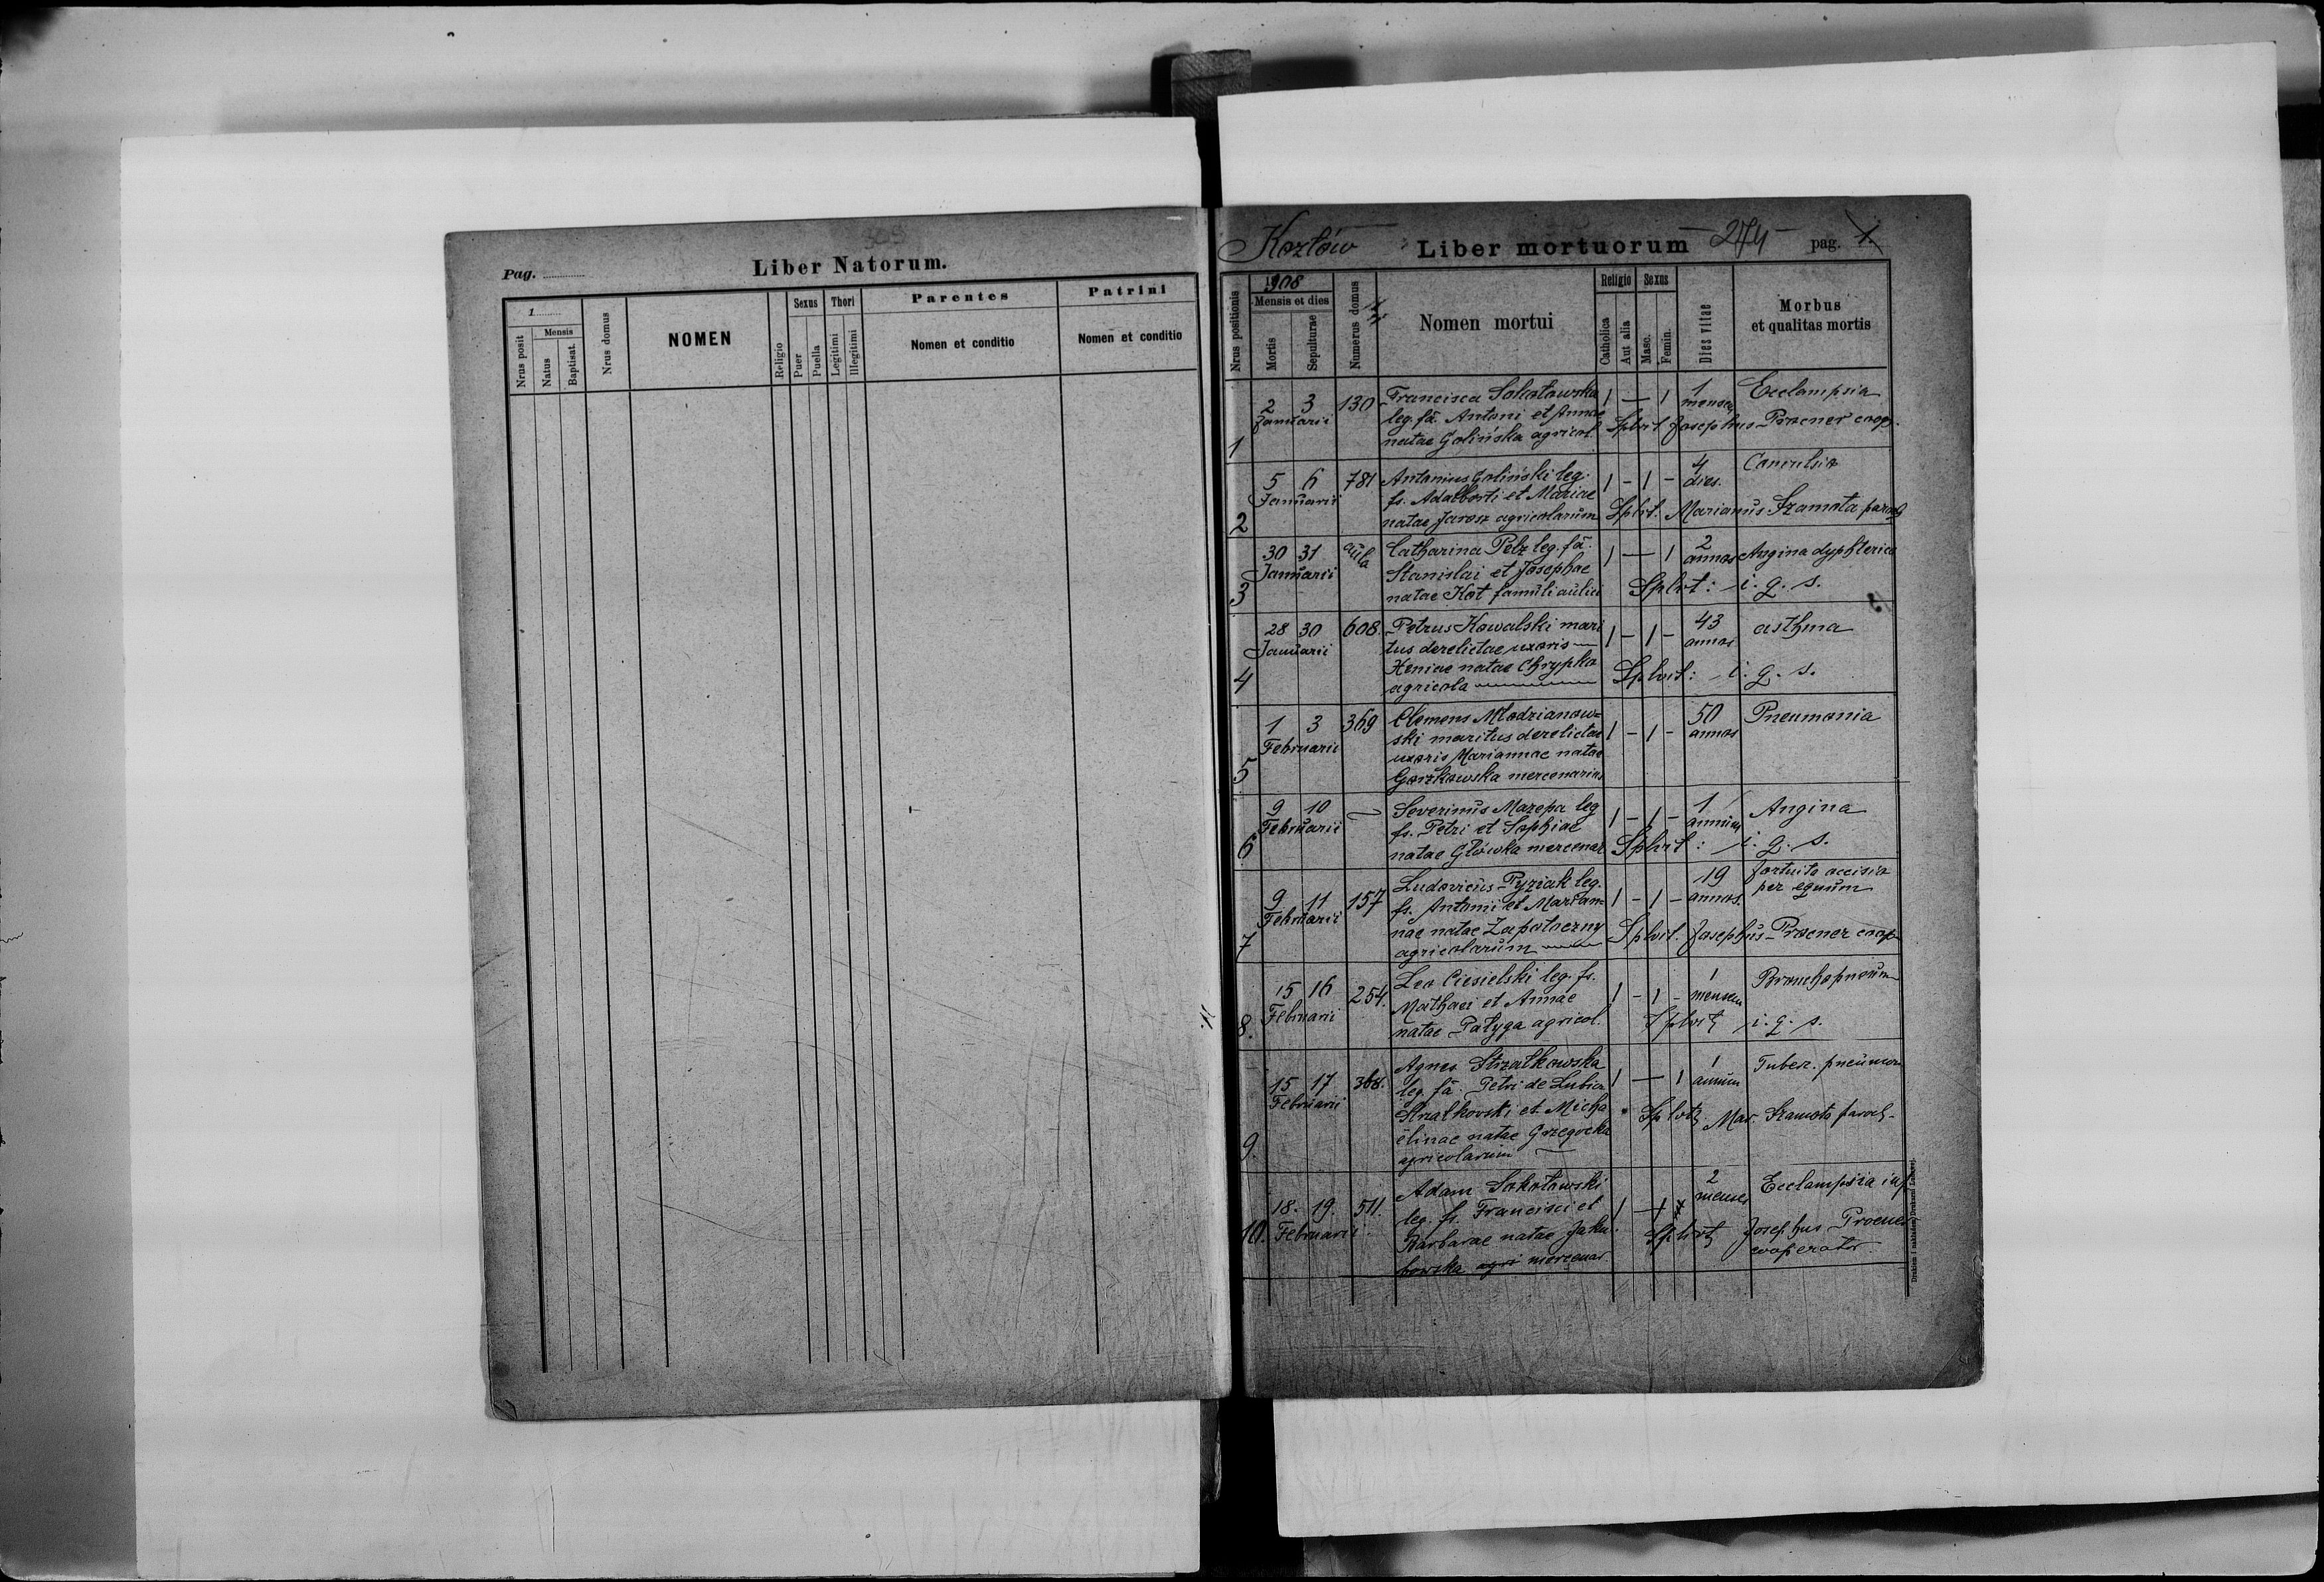 Pag.
Liber Natorum.
1
Nrus posit
Mensis
Natus
Baptisat.
Nrus domus
NOMEN
Religio
Sexus
Puer
Puella
Thori
Legitimi
Illegitimi
Parentes
Nomen et conditio
Patrini
Nomen et conditio
Kozłów
Liber mortuorum
- 274 -
pag. 1.
Nrus positionis
1908
Mensis et dies
Mortis
Sepulturae
Numerus domus
Nomen mortui
Religio
Catholica
Aut alia
Sexus
Masc.
Femin.
Dies vitae
Morbus
et qualitas mortis
1
2 3
Januarii
130
Francisca Sokołowska
leg. fa. Antoni et Annae
natae Golińska agricol.
1 — 1
1
mensem
Ecclampsia
Splvit Josephus Procner coop.
2
5 6
Januarii
781
Antonius Goliński leg.
fs. Adalberti et Mariae
natae Jarosz agricolarum
1 - 1 -
4
dies.
Convulsio
Splvit. Marianus Szamota paroch
3
30 31
Januarii
aula
Catharina Pelz leg. fa.
Stanislai et Josephae
natae Kot famuli aulici
1 — 1
2
annos
Angina dyphterica
Splvit: i. q. s.
4
28 30
Januarii
608
Petrus Kowalski mari
tus derelictae uxoris
Xeniae natae Chrypko
agricola
1 - 1 -
43
annos
asthma
Splvit: i. q. s.
5
1 3
Februarii
369
Clemens Młodzianow=
ski maritus derelictae
uxoris Mariannae natae
Gorzkowska mercenarius
1 - 1 -
50
annos
Pneumonia
6
9 10
Februarii
—
Severinus Mazepa leg
fs. Petri et Sophiae
natae Główka mercenar
1 - 1 -
1
annum
Angina
Splvit: i. q. s.
7
9 11
Februarii
157
Ludovicus Pyziak leg.
fs. Antonii et Marian=
nae natae Zapotoczny
agricolarum
1 - 1 -
19
annos.
fortuito occisio
per equum
Splvit. Josephus Procner coop
8.
15 16
Februarii
254.
Leo Ciesielski leg. fs.
Mathaei et Annae
natae Patyga agricol.
1 - 1 -
1
mensem
Bronchopneum
Splvit i. q. s.
9.
15 17
Februarii
368.
Agnes Strzałkowska
leg. fa. Petri de Lubicz
Strzałkowski et Micha
ëlinae natae Grzegocka
agricolarum
1 — 1
1
annum
Tuberc. pneumon
Splvit Mar. Szamota paroch.
10.
18. 19.
Februarii
511.
Adam Sokołowski
leg. fs. Francisci et
Barbarae natae Jaku
bowska agri mercenar
2
menses
Ecclampsia inf
Splvit Josephus Procner
cooperator.